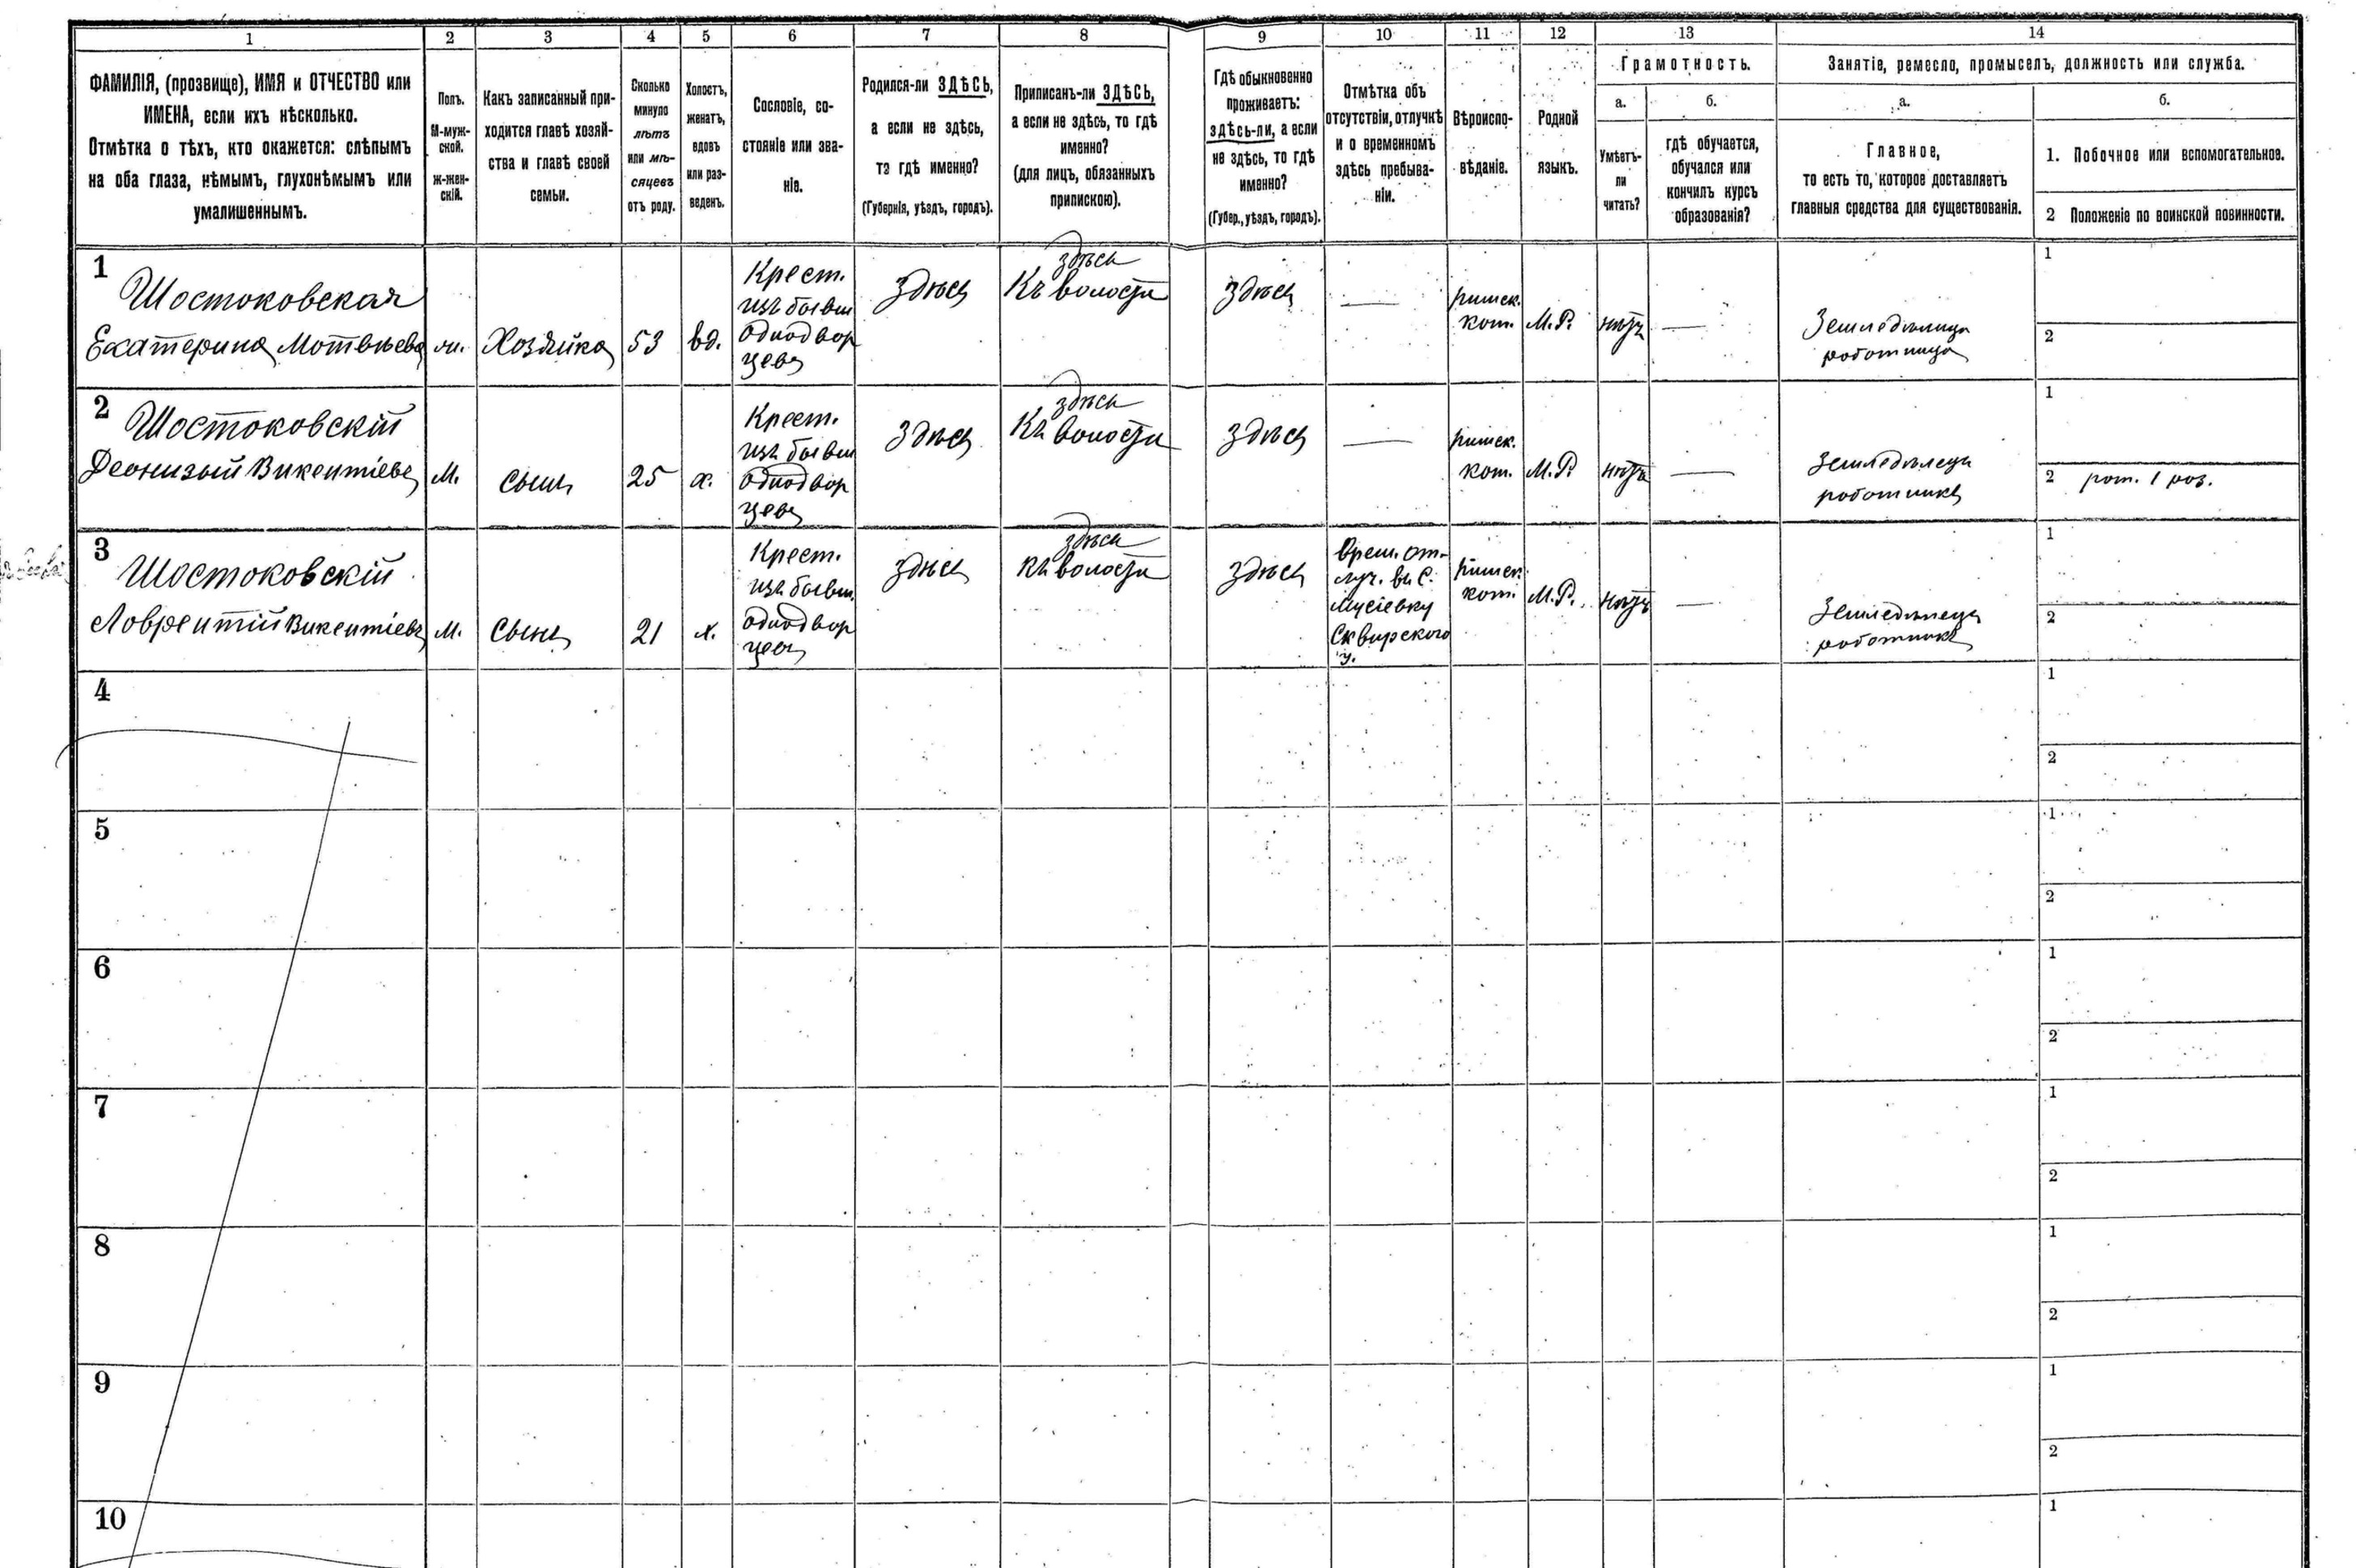 1 2 3 4 5 6 7 8 9 10 11 12 13 14
ФАМИЛІЯ, (прозвище), ИМЯ и ОТЧЕСТВО или
ИМЕНА, если ихъ нѣсколько.
Отмѣтка о тѣхъ, кто окажется: слѣпымъ
на оба глаза, нѣмымъ, глухонѣмымъ или
умалишеннымъ.
Полъ.
М-муж-
ской.
ж-жен-
скій.
Какъ записанный при-
ходится главѣ хозяй-
ства и главѣ своей
семьи.
Сколько
минуло
лѣтъ
или мѣ-
сяцевъ
отъ роду.
Холостъ,
женатъ,
вдовъ
или раз-
веденъ.
Сословіе, со-
стояніе или зва-
ніе.
Родился-ли ЗДѢСЬ,
а если не здѣсь,
то гдѣ именно?
(Губернія, уѣздъ, городъ).
Приписанъ-ли ЗДѢСЬ,
а если не здѣсь, то гдѣ
именно?
(для лицъ, обязанныхъ
припискою).
Гдѣ обыкновенно
проживаетъ:
здѣсь-ли, а если
не здѣсь, то гдѣ
именно?
(Губер., уѣздъ, городъ).
Отмѣтка объ
отсутствіи, отлучкѣ
и о временномъ
здѣсь пребыва-
ніи.
Вѣроиспо-
вѣданіе.
Родной
языкъ.
Грамотность.
а.
Умѣетъ-
ли
читать?
б.
гдѣ обучается,
обучался или
кончилъ курсъ
образованія?
Занятіе, ремесло, промыселъ, должность или служба.
а.
Главное,
то есть то, которое доставляетъ
главныя средства для существованія.
б.
1. Побочное или вспомогательное.
2 Положеніе по воинской повинности.
1
Шостоковская
Екатерина Мотвѣева
Хозяйка
53
вд.
Крест.
изъ бывш
однодвор
цевъ
здѣсь
здѣсь
Къ волости
здѣсь
—
римск.
кот.
М.Р.
нѣтъ
—
Земледѣлица
роботница
1
2
2
Шостоковскій
Деонизый Викентіевъ
М.
сынъ
25
х.
Крест.
изъ бывш
однодвор
цевъ
здѣсь
здѣсь
Къ волости
здѣсь
—
римск.
кот.
М.Р.
нѣтъ
—
Земледѣлецъ
роботникъ
1
2 рот. 1 роз.
3
Шостоковскій
Ловрентій Викентіевъ
М.
Сынъ
21
х.
Крест.
изъ бывш.
однодвор
цевъ
здѣсь
здѣсь
къ волости
здѣсь
врем. от-
луч. въ с.
Мусіевку
Сквирского
у.
римск.
кот.
М.Р.
нѣтъ
—
Земледѣлецъ
роботникъ
1
2
4
1
2
5
1
2
6
1
2
7
1
2
8
1
2
9
1
2
10
1